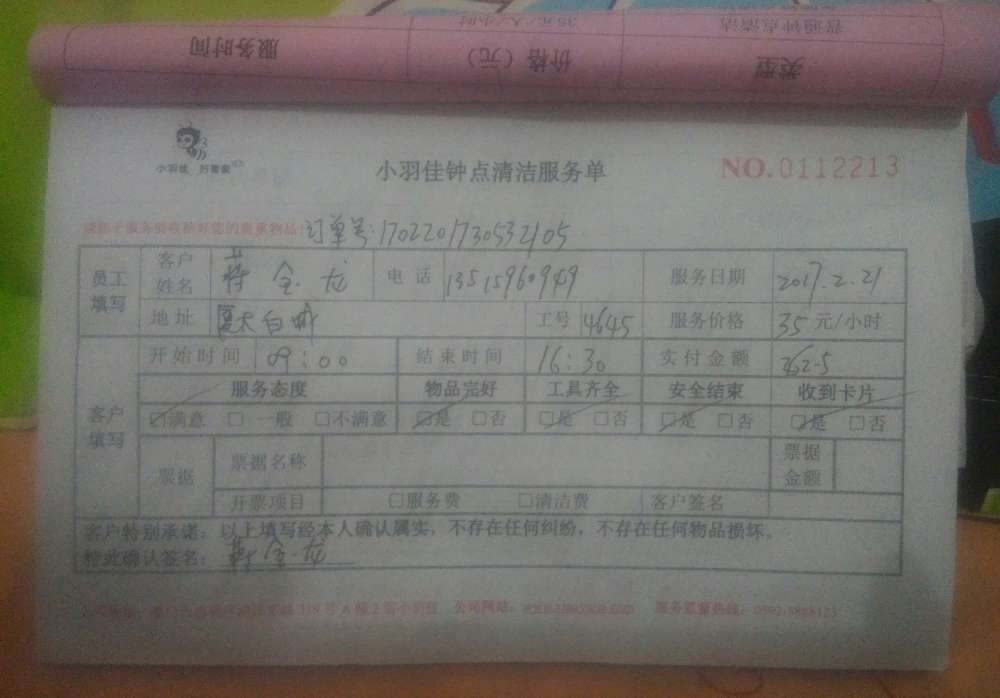 服务时间 价格（元） 类型
35元/人/小时 普通钟点清洁
小羽佳 好管家
小羽佳钟点清洁服务单
NO.0112213
订单号:1702201730532105
员工填写 客户姓名 蒋金龙 电话 13515960949 服务日期 2017.2.21
地址 厦大白城 工号 4645 服务价格 35元/小时
客户填写 开始时间 09:00 结束时间 16:30 实付金额 262.5
服务态度 物品完好 工具齐全 安全结束 收到卡片
☑满意 □一般 □不满意 ☑是 □否 ☑是 □否 ☑是 □否 ☑是 □否
票据 票据名称 票据金额
开票项目 □服务费 □清洁费 客户签名
客户特别承诺：以上填写经本人确认属实，不存在任何纠纷，不存在任何物品损坏。
特此确认签名：蒋金龙
318号A幢2 公司网站： 服务监督热线：0592-5888123